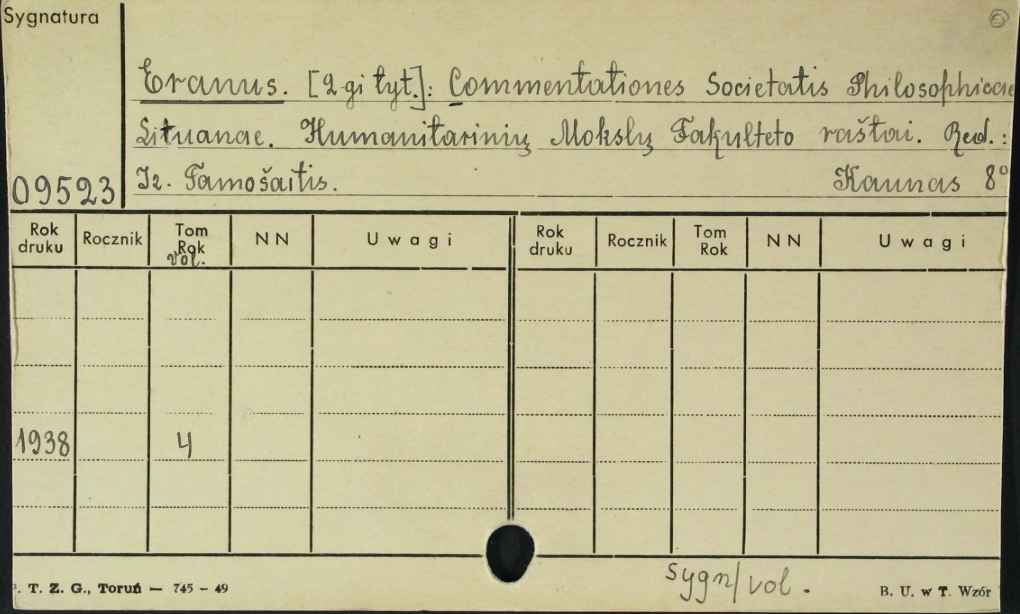 Sygnatura
Eranus. [2-gi tyt.]: Commentationes Societatis Philosophicae
Lituanae. Humanitarinių Mokslų Fakulteto raštai. Red.:
09523 Iz. Tamošaitis. Kaunas 8°
Rok druku Rocznik Tom Rok vol. NN Uwagi Rok druku Rocznik Tom Rok NN Uwagi
1938 4
sygn/vol.
. T. Z. G., Toruń — 745 – 49 B. U. w T. Wzór